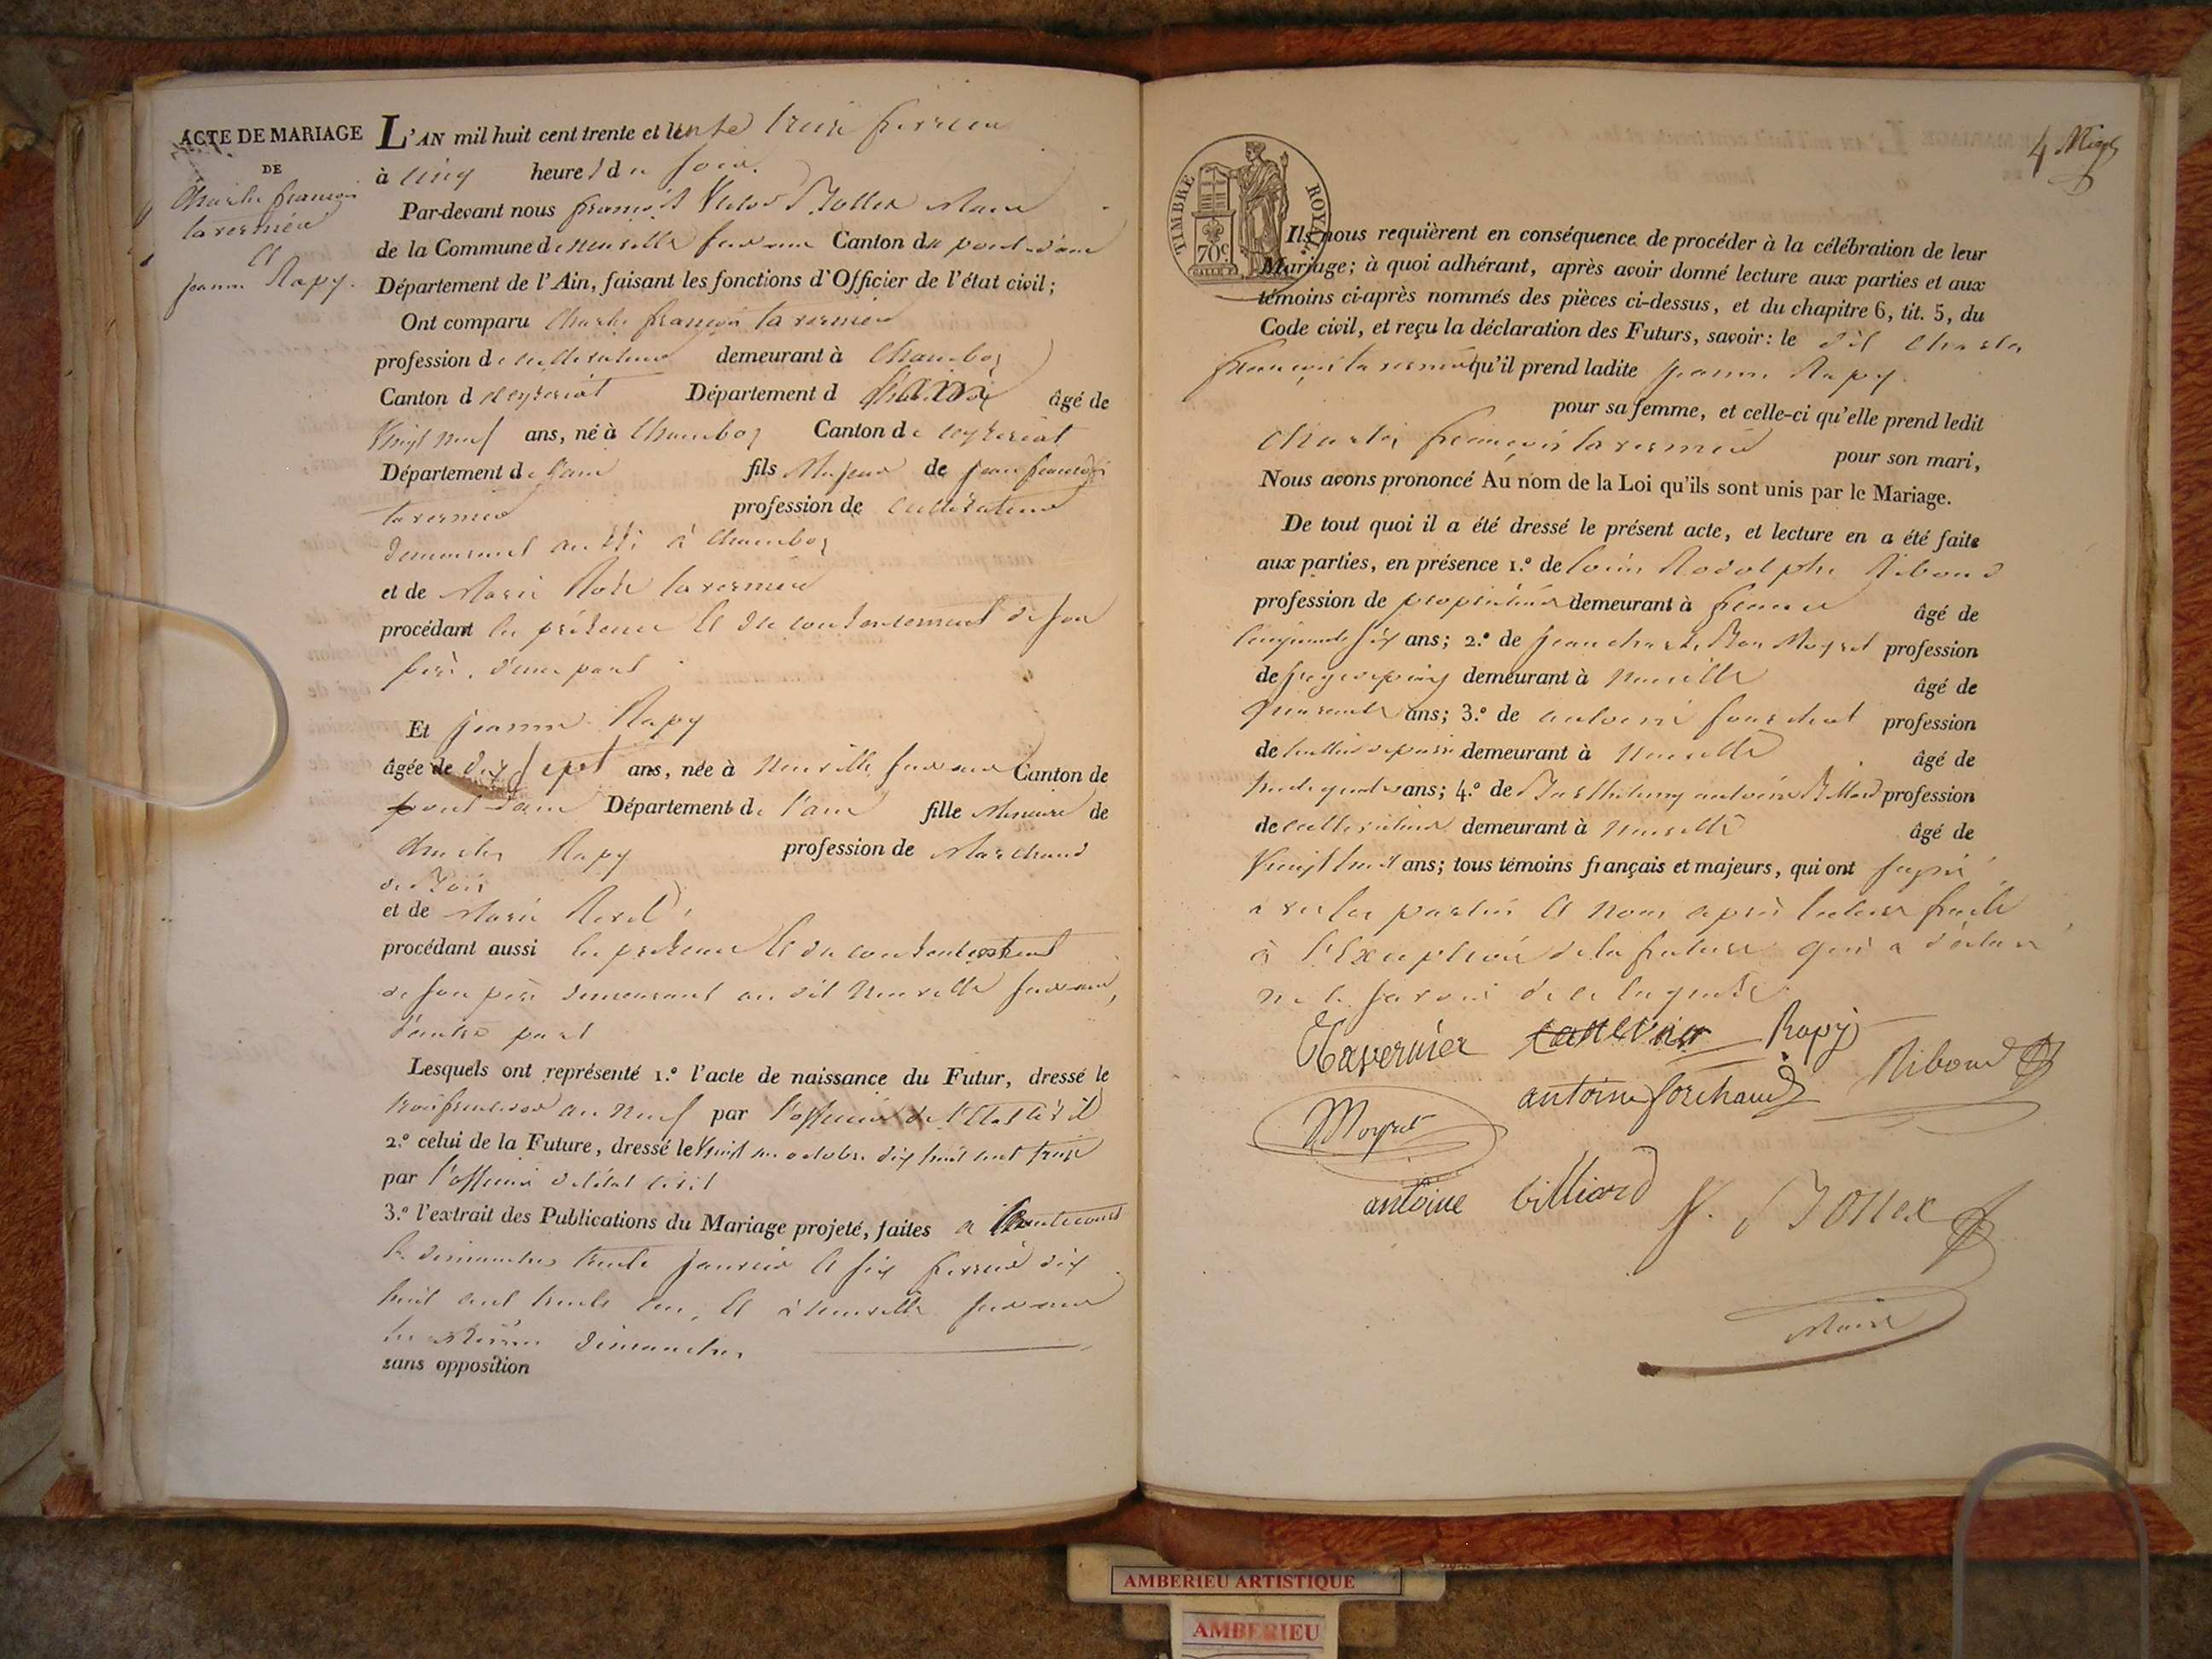 ACTE DE MARIAGE
DE
Charles françois
tavernier
et
jeanne Rapy.
L'AN mil huit cent trente et un le treize fevrier
à cinq heures du soir.
Par-devant nous françois Victor Bollex Maire
de la Commune de neuville sur ain Canton de pont-d'ain
Département de l'Ain, faisant les fonctions d'Officier de l'état civil;
Ont comparu Charles françois tavernier
profession de cultivateur demeurant à Chambod
Canton de ceyzeriat Département d âgé de
Vingt neuf ans, né à Chambod Canton de ceyzeriat
Département de l'ain fils Majeur de jean françois
tavernier profession de cultivateur
demeurant aussi à Chambod
et de Marie tavernier
procédant en présence et du consentement de son
père, d'une part
Et jeanne Rapy
âgée de dix sept ans, née à neuville sur ain Canton de
pont d'ain Département de l'ain fille Mineure de
Charles Rapy profession de Marchand
de Bois
et de Marie
procédant aussi en présence et du consentement
de son père demeurant au dit neuville sur ain,
d'autre part
Lesquels ont représenté 1.º l'acte de naissance du Futur, dressé le
an neuf par l'officier de l'Etat civil
2.º celui de la Future, dressé le Vingt un octobre dix huit cent treize
par l'officier de l'état civil
3.º l'extrait des Publications du Mariage projeté, faites a hautecourt
les dimanches trente janvier et six fevrier dix
huit cent trente un, et à neuville sur ain
les Mêmes dimanches
sans opposition
TIMBRE ROYAL
70c
4
Ils nous requièrent en conséquence de procéder à la célébration de leur
Mariage; à quoi adhérant, après avoir donné lecture aux parties et aux
témoins ci-après nommés des pièces ci-dessus, et du chapitre 6, tit. 5, du
Code civil, et reçu la déclaration des Futurs, savoir: le dit Charles
françois tavernier qu'il prend ladite jeanne Rapy
pour sa femme, et celle-ci qu'elle prend ledit
Charles françois tavernier pour son mari,
Nous avons prononcé Au nom de la Loi qu'ils sont unis par le Mariage.
De tout quoi il a été dressé le présent acte, et lecture en a été faite
aux parties, en présence 1.º de louis Rodolphe Riboud
profession de propriétaire demeurant à âgé de
cinquante six ans; 2.º de jean charles Moyret profession
de demeurant à neuville âgé de
quarante ans; 3.º de antoine forchat profession
de demeurant à neuville âgé de
trente quatre ans; 4.º de Barthelemy antoine Billard profession
de cultivateur demeurant à neuville âgé de
Vingt huit ans; tous témoins français et majeurs, qui ont signé
avec les parties et nous après lecture faite
à l'Exception de la future qui a déclaré
ne le savoir de ce enquise
Tavernier Rapy
Riboud
antoine forchaud
Moyret
antoine billiard
V. Bollex
Maire
AMBERIEU ARTISTIQUE
AMBERIEU